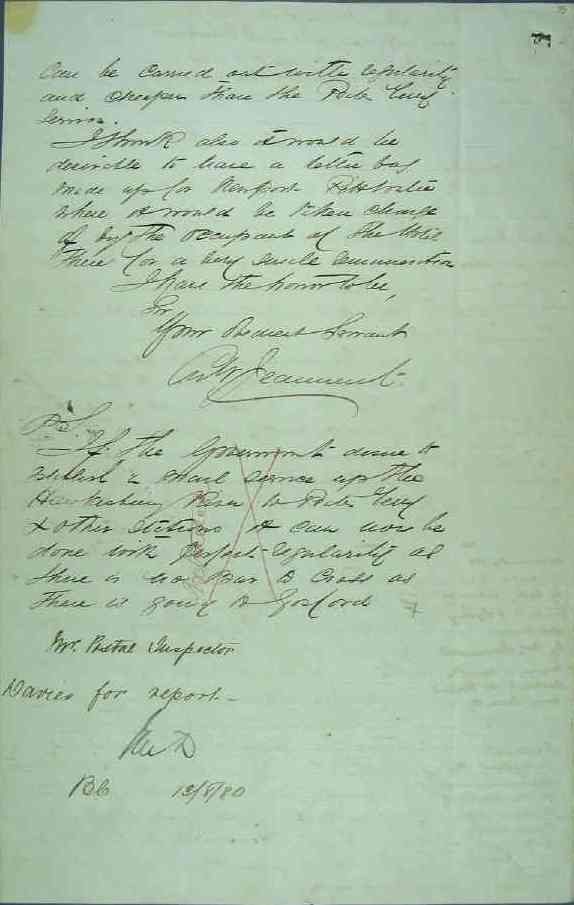 can be carried out with regularity
and cheaper than the Peats Ferry
service.
I think also it would be
desirable to have a letter bag
made up for Newport Pittwater
where it would be taken charge
of by the occupant of the Hotel
there for a very small remuneration
I have the honor to be,
Sir
Your Obedient Servant
Jeannerret
P.S.
If the Government desire to
establish a mail service up the
Hawkesbury River to Peats Ferry
& other stations it can now be
done with perfect regularity as
there is no bar to cross as
there is going to Gosford
Mr. Postal Inspector
Davies for report
BC 13/8/80